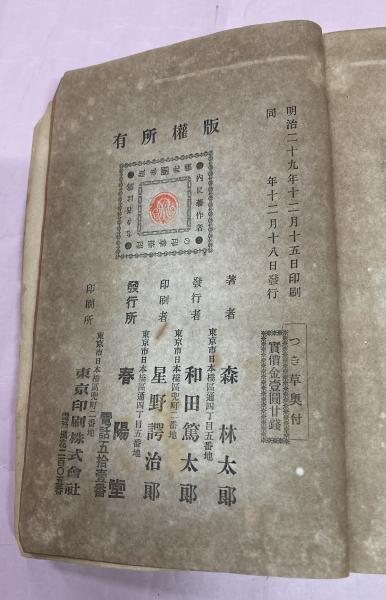 明治二十九年十二月十五日印刷
同 年十二月十八日發行
つき草奧付
實價金壹圓廿錢
版權所有
著者 森林太郎
東京市日本橋區通四丁目五番地
發行者 和田篤太郎
東京市日本橋區兜町二番地
印刷者 星野諤治郎
東京市日本橋區通四丁目五番地
發行所 春陽堂
電話五拾壹番
東京市日本橋區兜町二番地
印刷所 東京印刷株式會社
電話浪花二百〇五番